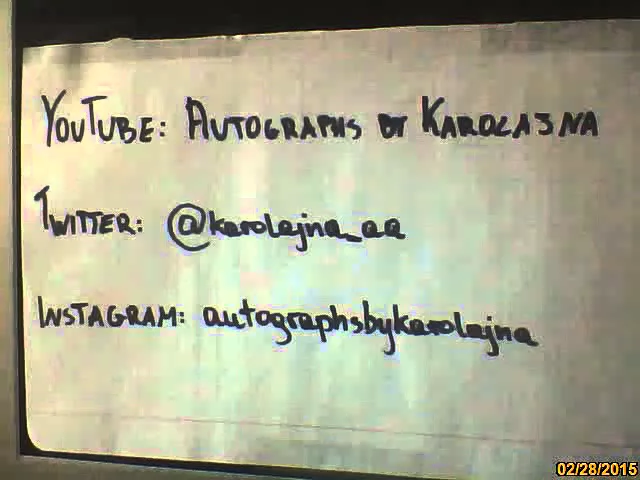 YouTube: Autographs by Karolajna
Twitter: @karolajna_aa
Instagram: autographsbykarolajna
02/28/2015